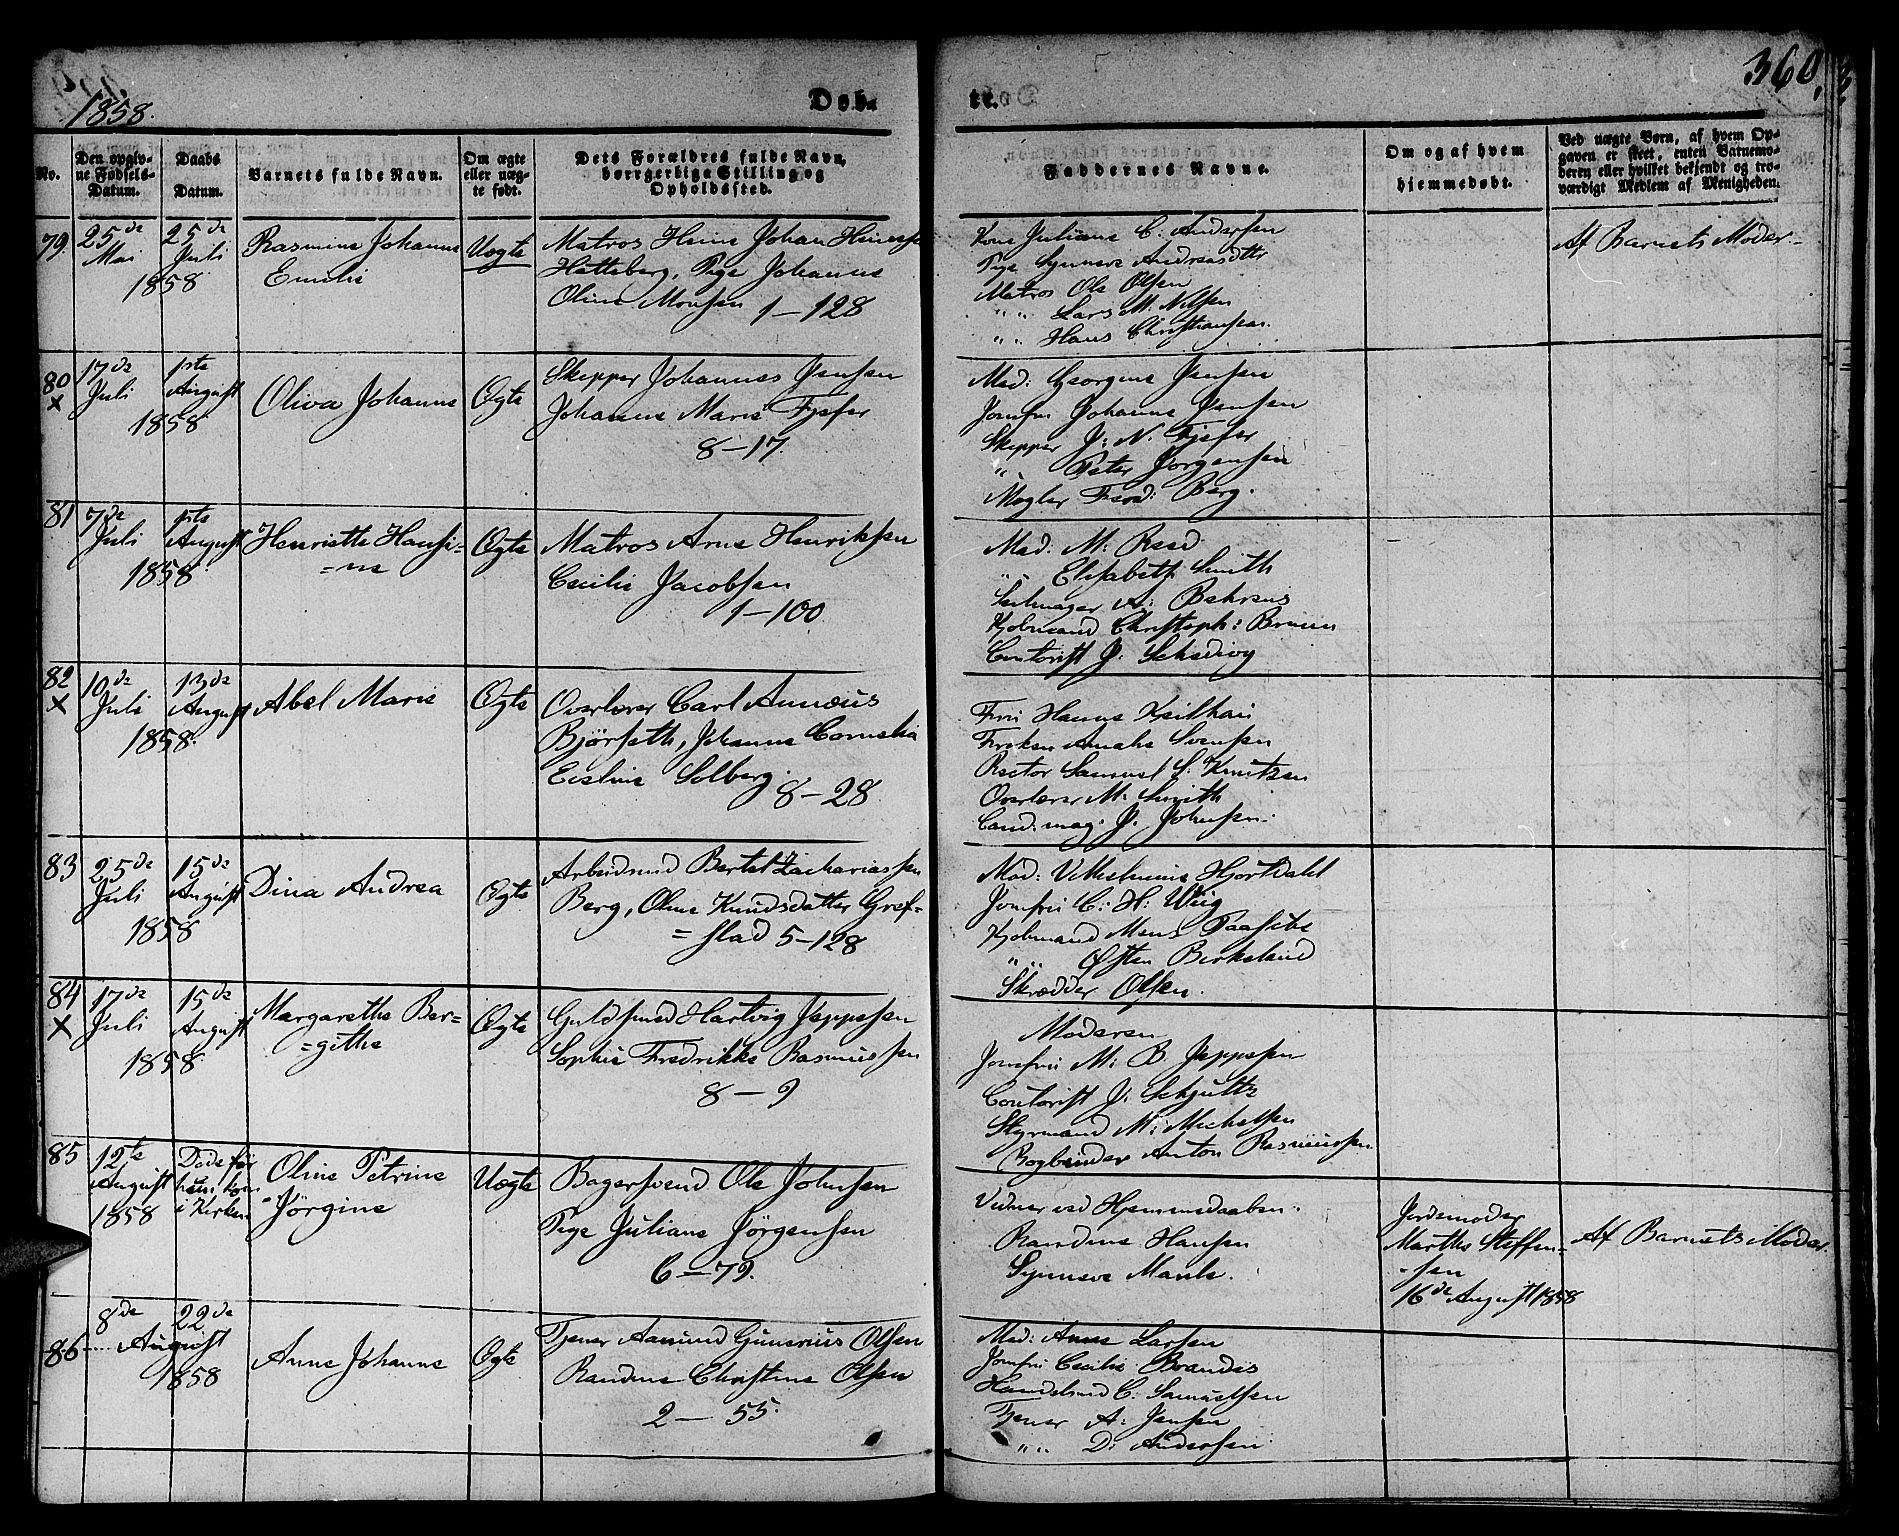 1858.
Døb-
te.
360.
No.
Den opgiv-
ne Fødsels-
Datum.
Daabs
Datum.
Barnets fulde Navn.
Om ægte
eller uæg-
te født.
Dets Forældres fulde Navn,
borrgerlige Stilling og
Opholdssted.
Faddernes Navne.
Om og af hvem
hjemmedøbt.
Ved uægte Børn, af hvem Op-
gaven er skeet, enten Barnemo-
deren eller hvilket bekjendt og tro-
værdigt Medlem af Menigheden.
79.
25de
Mai
25de
Juli
1858
Rasmine Johanne
Emilie
Uægte
Matros Heine Johan Heinesen
Hatteberg, Pige Johanne
Oline Monsen 1–128
Kone Juliane C. Andersen
Pige Synneve Andreasdtter
Matros Ole Olsen
" " Lars M. Nilsen
" " Hans Christiansen.
Af Barnets Moder.
80
x
17de
Juli
1ste
August
1858
Oliva Johanne
Ægte
Skipper Johannes Jensen
Johanne Marie Fjeser
8–17.
Mad: Georgine Jensen
Jomfru Johanne Jensen
Skipper J: N. Fjeser
" Peter Jørgensen
Mægler Fred: Berg.
81
7de
Juli
1ste
August
1858.
Henriette Hansi=
=ne
Ægte
Matros Arne Henriksen
Cecilie Jacobsen
1–100
Mad. M: Reed
" Elisabeth Smith
Seilmager A: Behrens
Kjøbmand Christoph: Bruun
Contorist J. Schediog
82
x
10de
Juli
13de
August
1858.
Abel Marie
Ægte
Overlærer Carl Annæus
Bjørseth, Johanne Cornelia
Eveline Solberg. 8–28.
Fru Hanne Keilhau
Frøken Amalie Svensen
Rector Samuel S. Knutzen
Overlærer M. Smith
Cand: mag: J. Johnsen.
83
25de
Juli
15de
August
1858
Dina Andrea
Ægte
Arbeidsmd Bertel Zachariassen
Berg, Oline Knudsdatter Gref=
=stad 5–128
Mad: Vilhelmine Hjortdahl
Jomfru C: H: Wiig
Kjøbmand Mons Taasebe
" " Østen Birkeland
Skrædder Olsen.
84
x
17de
Juli
15de
August
1858
Margarethe Ber=
=githe
Ægte
Guldsmed Hartvig Jeppesen
Sophie Fredrikke Rasmussen
8–9
Moderen
Jomfru M: B. Jeppesen
Contorist J. Schjultz
Styrmand M: Michelsen
Bogbinder Anton Rasmussen
85
12te
August
1858
Døde før
hun kom
i Kirken
Oline Petrine
Jørgine
Uægte
Bagersvend Ole Johnsen
Pige Juliane Jørgensen
6–79.
Vidner ved Hjemmedaaben.
Randine Hansen
Synneve Manle.
Jordemoder
Marthe Steffen-
-sen
16de August 1858
Af Barnets Moder.
86
8de
22de
August
1858
Anne Johanne
Ægte
Tjener Aamund Gunerius Olsen
Randine Christine Olsen
2–55.
Mad: Anne Larsen
Jomfru Cecilie Brandis
Handelsmd C. Samuelsen
Tjener A: Jensen
" " D: Andersen